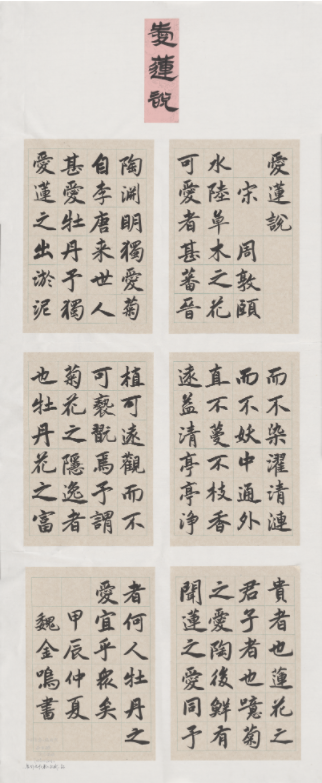 愛蓮說
愛蓮說
宋 周敦頤
水陸草木之花
可愛者甚蕃晉
陶淵明獨愛菊
自李唐来世人
甚愛牡丹予獨
愛蓮之出淤泥
而不染濯清漣
而不妖中通外
直不蔓不枝香
遠益清亭亭浄
植可遠觀而不
可褻翫焉予謂
菊花之隱逸者
也牡丹花之富
貴者也蓮花之
君子者也噫菊
之愛陶後鮮有
聞蓮之愛同予
者何人牡丹之
愛宜乎衆矣
甲辰仲夏
魏金鳴書